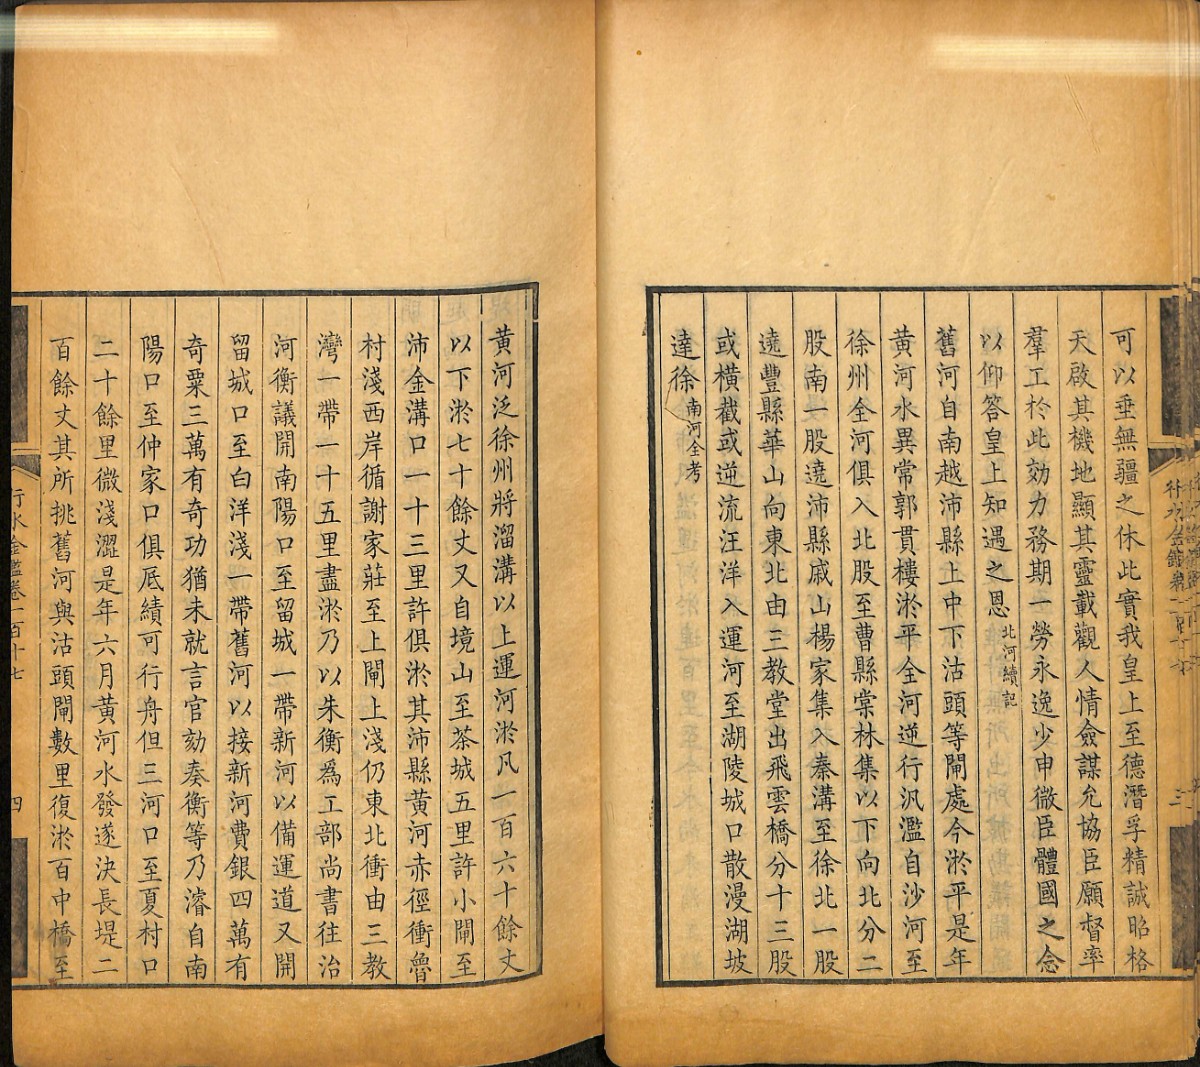 可以垂無疆之休此實我皇上至德潛孚精誠昭格
天啟其機地顯其靈載觀人情僉謀允協臣願督率
羣工於此効力務期一勞永逸少申微臣體國之念
以仰答皇上知遇之恩北河續記
舊河自南越沛縣上中下沽頭等閘處今淤平是年
黃河水異常郭貫樓淤平全河逆行汎濫自沙河至
徐州全河俱入北股至曹縣棠林集以下向北分二
股南一股遶沛縣戚山楊家集入秦溝至徐北一股
遶豐縣華山向東北由三教堂出飛雲橋分十三股
或橫截或逆流汪洋入運河至湖陵城口散漫湖坡
達徐南河全考
黃河泛徐州將溜溝以上運河淤凡一百六十餘丈
以下淤七十餘丈又自境山至茶城五里許小閘至
沛金溝口一十三里許俱淤其沛縣黃河赤徑衝魯
村淺西岸循謝家莊至上閘上淺仍東北衝由三教
灣一帶一十五里盡淤乃以朱衡為工部尚書往治
河衡議開南陽口至留城一帶新河以備運道又開
留城口至白洋淺一帶舊河以接新河費銀四萬有
奇粟三萬有奇功猶未就言官劾奏衡等乃濬自南
陽口至仲家口俱底績可行舟但三河口至夏村口
二十餘里微淺澀是年六月黃河水發遂決長堤二
百餘丈其所挑舊河與沽頭閘數里復淤百中橋至
行水金鑑卷一百十七
四